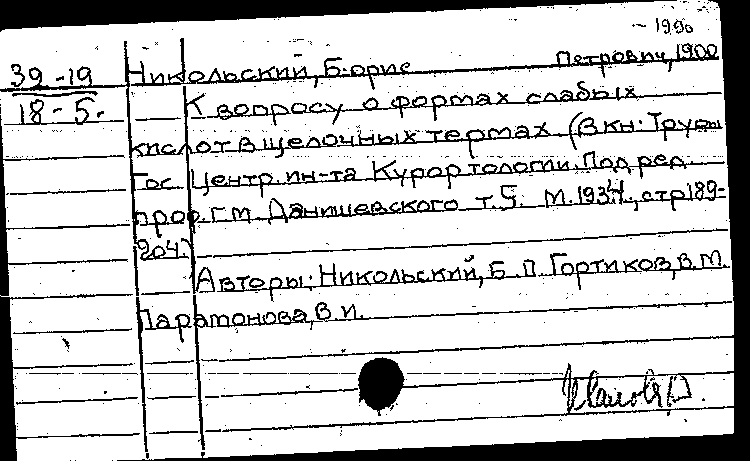 39-19 Никольский, Борис Петрович, 1900
18-5. К вопросу о формах слабых
кислот в щелочных термах (В кн: Труды
Гос Центр. ин-та Курортологии. Под ред.
проф. Г.М. Данишевского т. 5. М. 1934, стр 189-
204)
Авторы: Никольский, Б. П. Гортиков, В.М.
Парамонова, В.И.